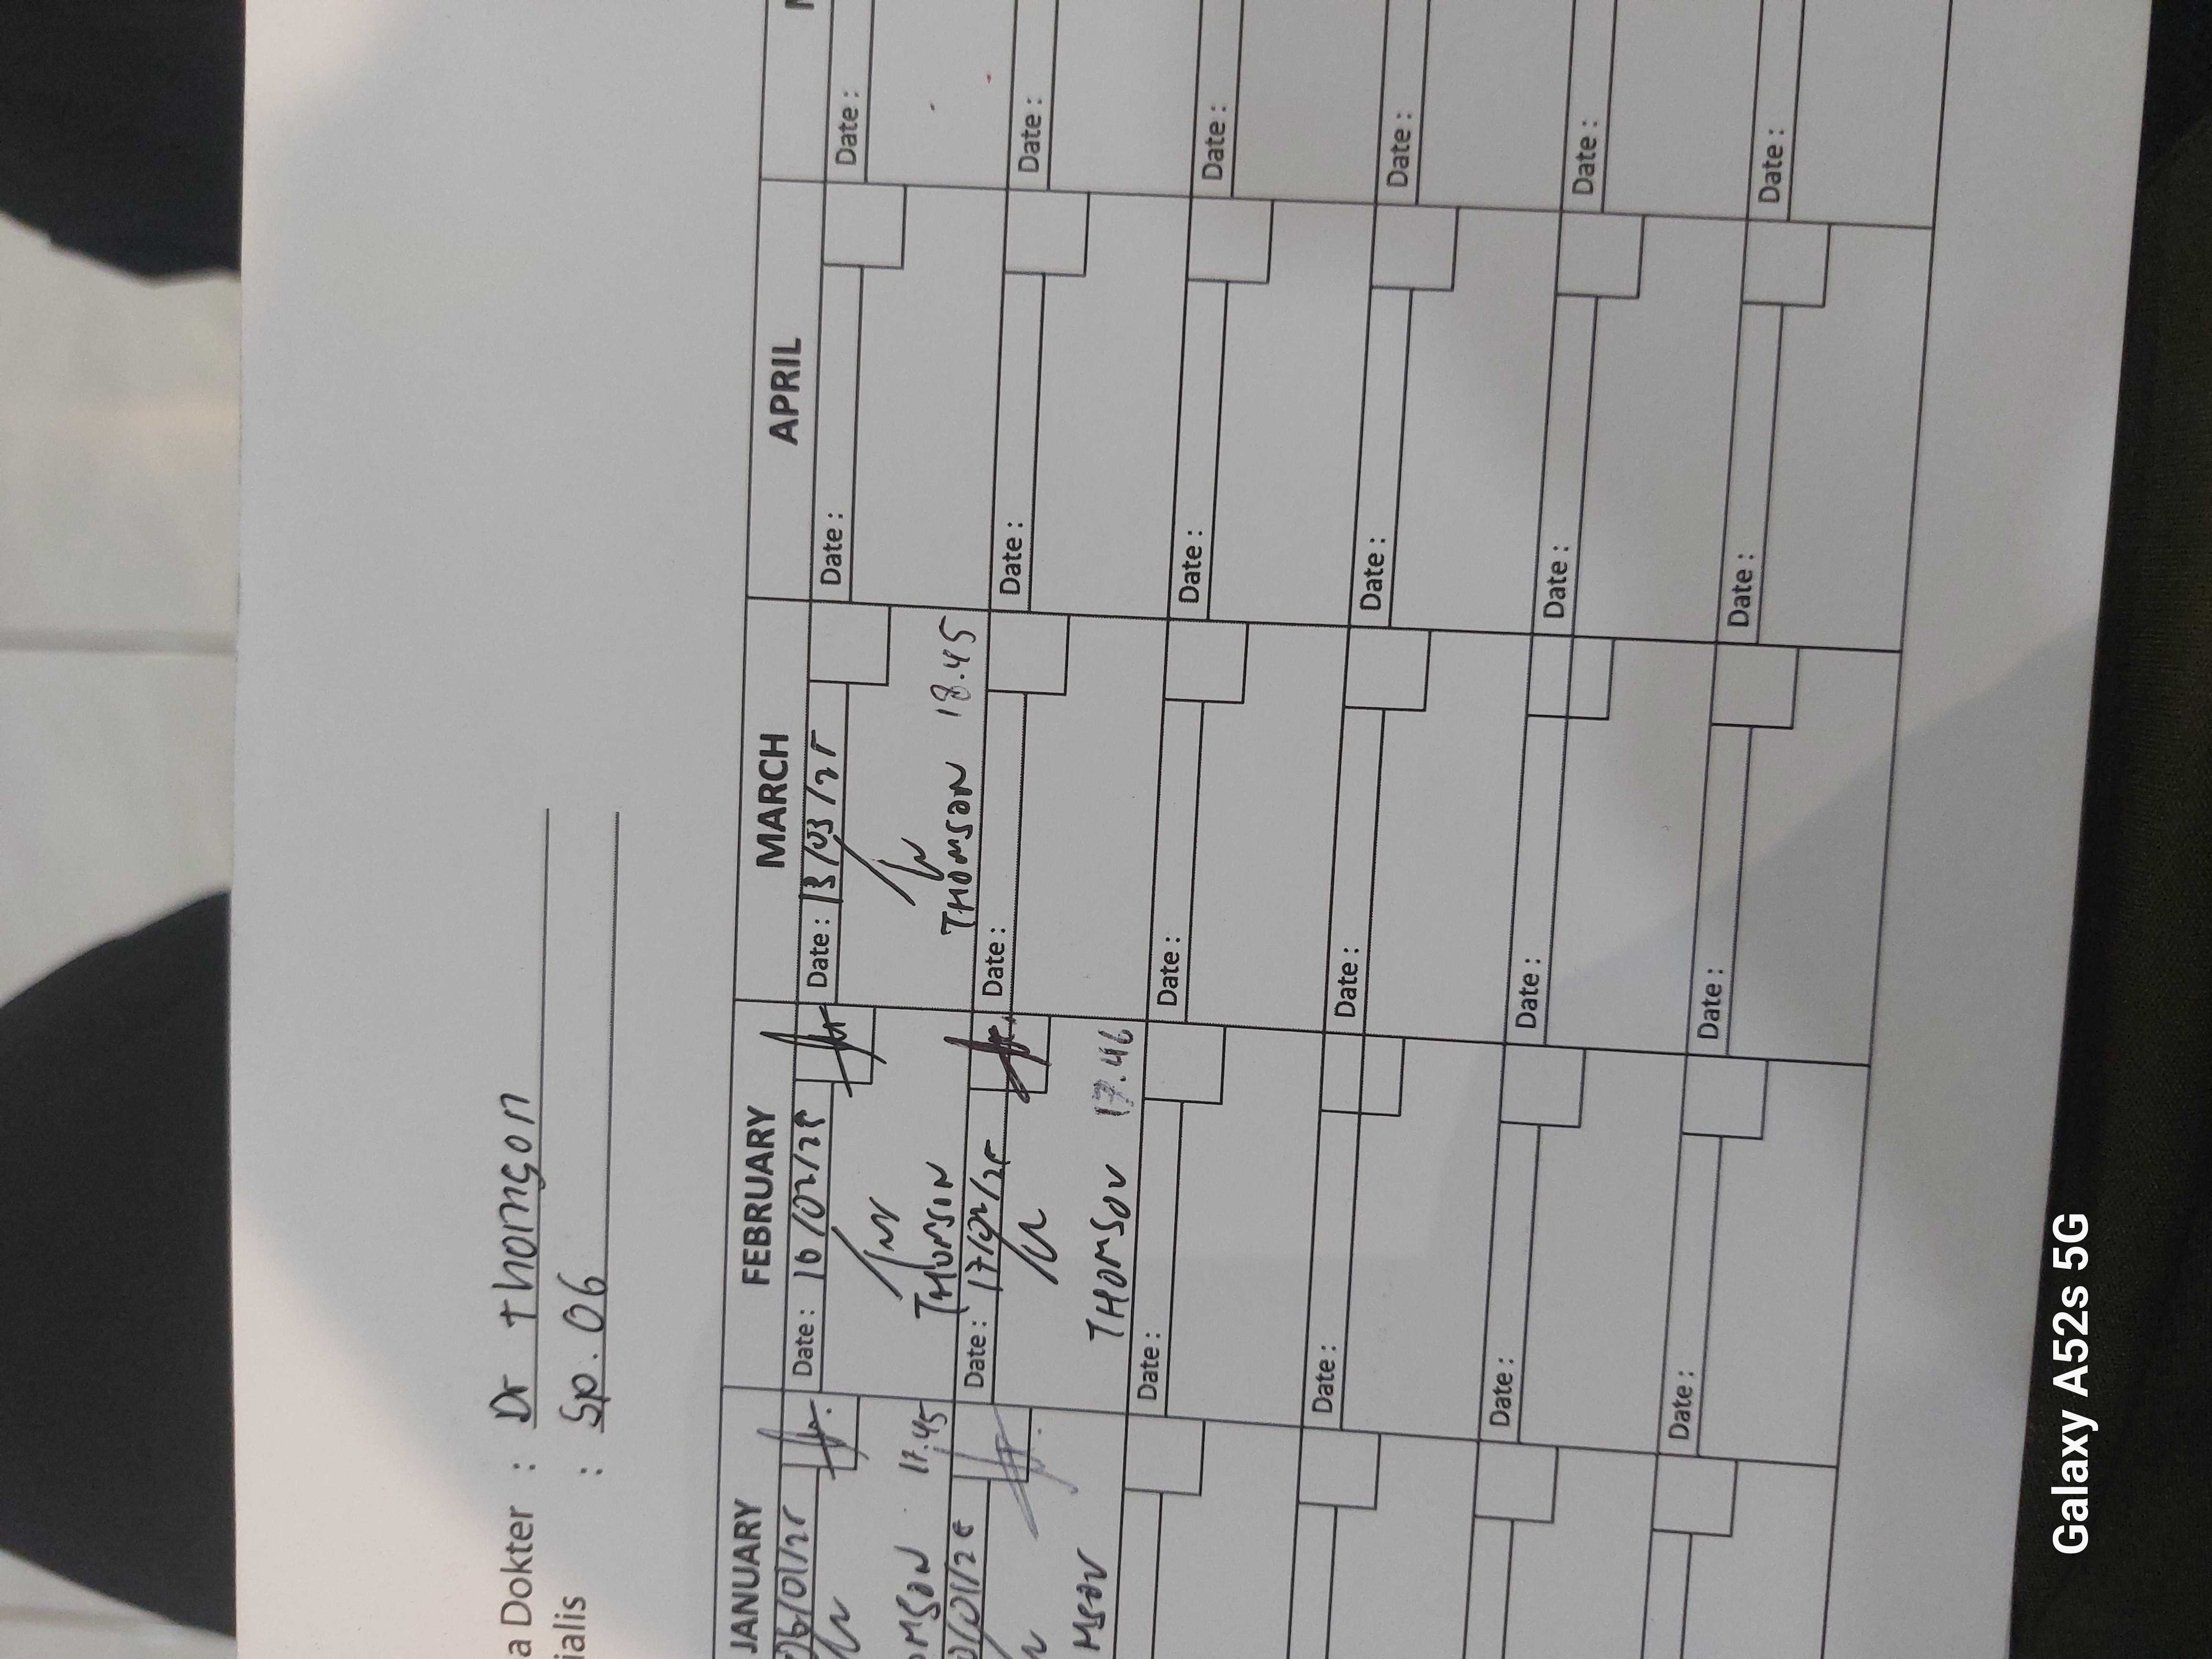 a Dokter : Dr thomson
ialis : Sp. OG
JANUARY FEBRUARY MARCH APRIL
Date : 10/02/25 Date : 13/03/25 Date : Date :
OMSON 17.45 THOMSON THOMSON 18.45
Date : 17/02/25 Date : Date : Date :
MSON THOMSON 17.46
Date : Date : Date : Date :
Date : Date : Date : Date :
Date : Date : Date : Date :
Date : Date : Date : Date :
Galaxy A52s 5G